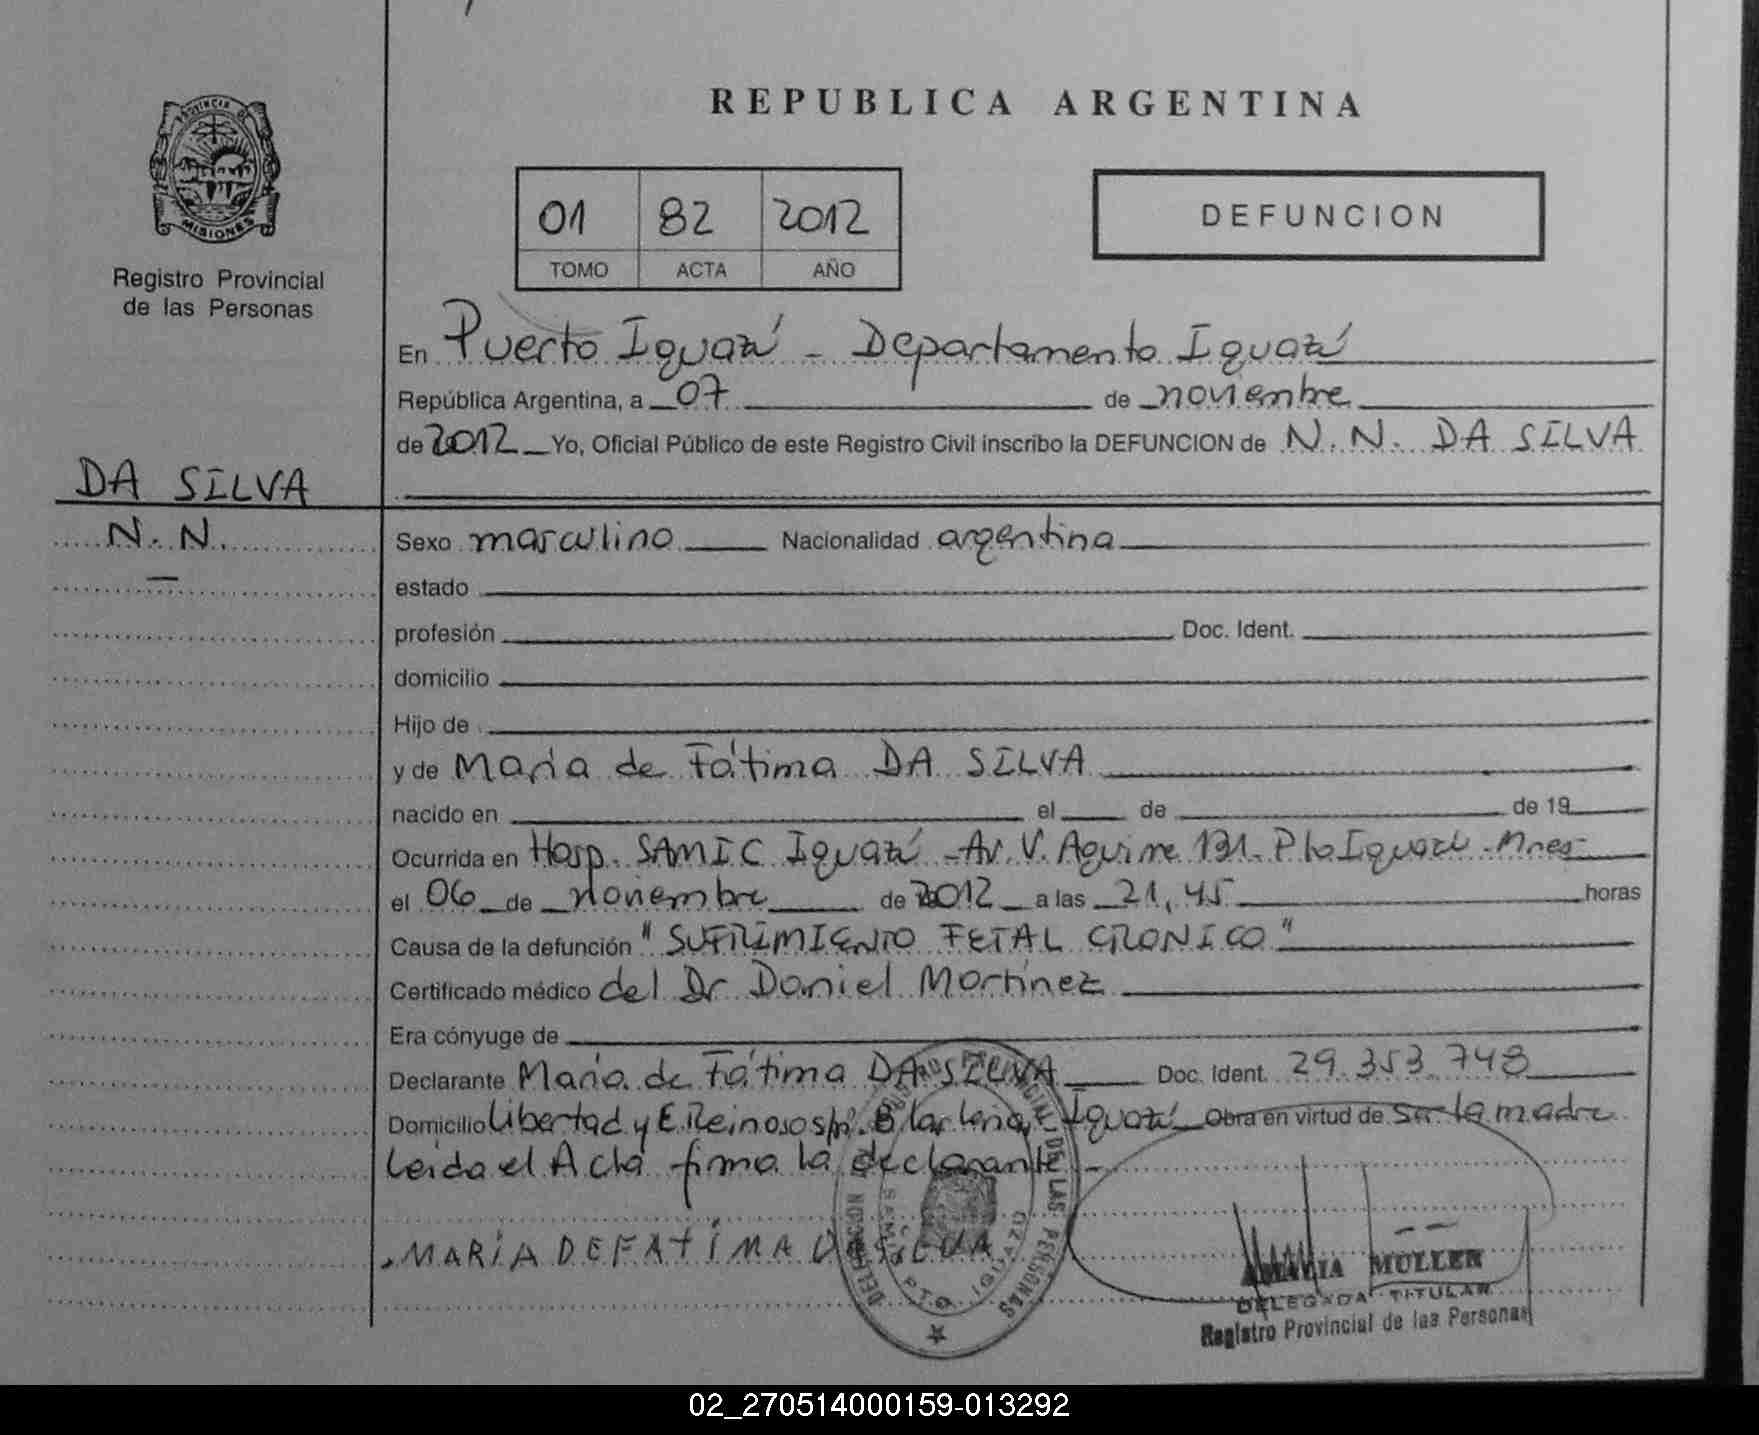 REPUBLICA ARGENTINA
PROVINCIA DE
MISIONES
Registro Provincial
de las Personas
01 82 2012
TOMO ACTA AÑO
DEFUNCION
En Puerto Iguazú - Departamento Iguazú
República Argentina, a 07 de noviembre
de 2012 Yo, Oficial Público de este Registro Civil inscribo la DEFUNCION de N. N. DA SILVA
DA SILVA
N. N.
Sexo masculino Nacionalidad argentina
estado
profesión Doc. Ident.
domicilio
Hijo de
y de María de Fátima DA SILVA
nacido en el de de 19
Ocurrida en Hosp. SAMIC Iguazú - Av. V. Aguirre 131 - Pto Iguazú - Mnes
el 06 de noviembre de 2012 a las 21,45 horas
Causa de la defunción "SUFRIMIENTO FETAL CRONICO"
Certificado médico del Dr Daniel Martínez
Era cónyuge de
Declarante María de Fátima DA SILVA Doc. Ident. 29.353.748
Domicilio Libertad y E. Reinoso s/n. B Iguazú Obra en virtud de ser la madre
Leida el Acta firma la declarante -
MARÍA DE FATÍMA DA SILVA
REGISTRO PROVINCIAL DE LAS PERSONAS
PTO. IGUAZU
AMALIA MULLER
DELEGADA TITULAR
Registro Provincial de las Personas
02_270514000159-013292